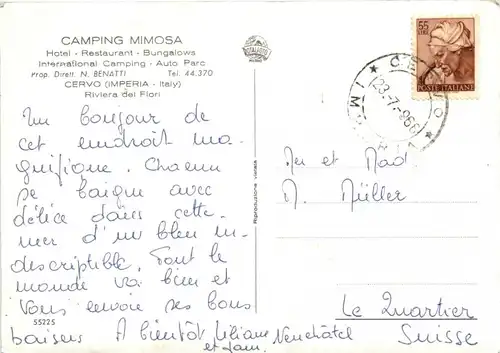 CAMPING MIMOSA
Hotel - Restaurant - Bungalows
International Camping - Auto Parc
Prop. Dirett. N. BENATTI Tel. 44.370
CERVO (IMPERIA - Italy)
Riviera dei Fiori
55 LIRE
POSTE ITALIANE
CERVO
23-7-966
Un bonjour de
cet endroit ma-
gnifique. Chacun
se baigne avec
délice dans cette
mer d'un bleu in-
descriptible. Tout le
monde va bien et
vous envoie ses bons
baisers A bientôt Liliane
et fam.
55225
Riproduzione vietata
Mr et Mad
M. Müller
Le Quartier
Neuchâtel
Suisse